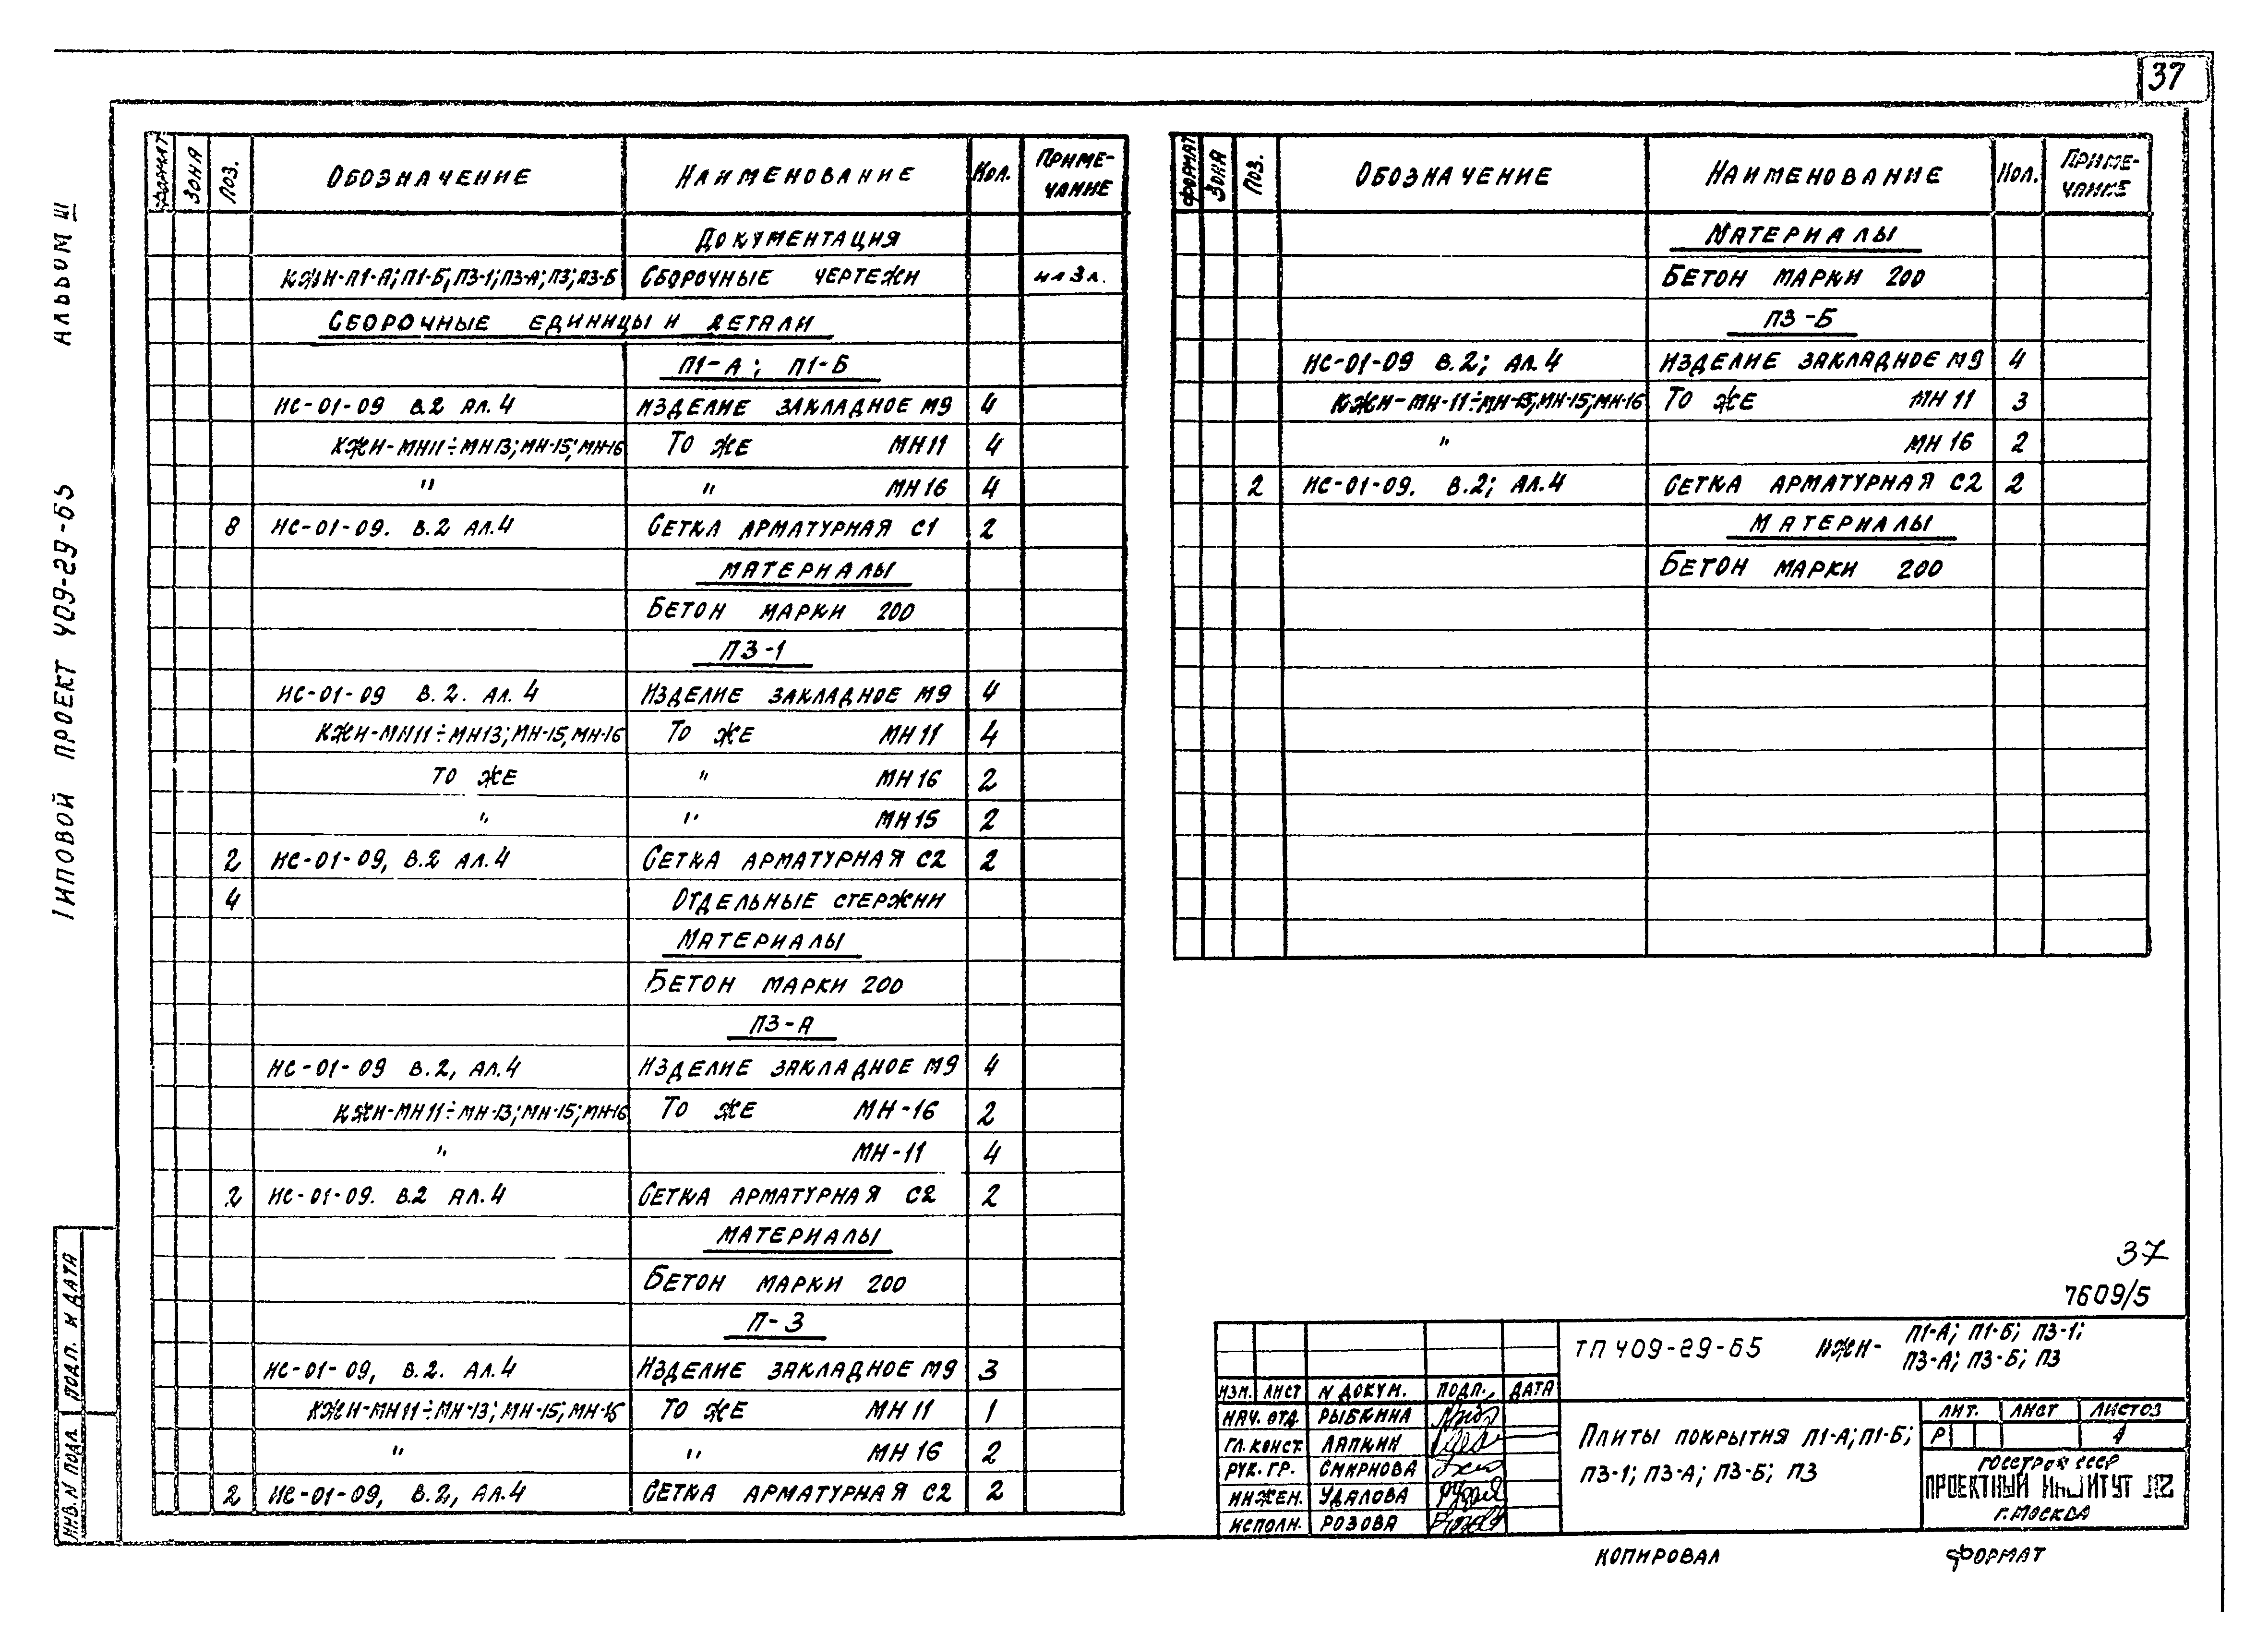 37
АЛЬБОМ III
ТИПОВОЙ ПРОЕКТ 409-29-65
ИНВ. N ПОДЛ. ПОДП. И ДАТА
ФОРМАТ ЗОНА ПОЗ. ОБОЗНАЧЕНИЕ НАИМЕНОВАНИЕ КОЛ. ПРИМЕ-
ЧАНИЕ
ДОКУМЕНТАЦИЯ
КЖИ-П1-А; П1-Б; П3-1; П3-А; П3; П3-Б СБОРОЧНЫЕ ЧЕРТЕЖИ на 3 л.
СБОРОЧНЫЕ ЕДИНИЦЫ И ДЕТАЛИ
П1-А; П1-Б
ИС-01-09 В.2 АЛ.4 ИЗДЕЛИЕ ЗАКЛАДНОЕ М9 4
КЖИ-МН11÷МН13; МН-15; МН-16 ТО ЖЕ МН11 4
" " МН16 4
8 ИС-01-09. В.2 АЛ.4 СЕТКА АРМАТУРНАЯ С1 2
МАТЕРИАЛЫ
БЕТОН МАРКИ 200
П3-1
ИС-01-09 В.2. АЛ.4 ИЗДЕЛИЕ ЗАКЛАДНОЕ М9 4
КЖИ-МН11÷МН13; МН-15, МН-16 ТО ЖЕ МН11 4
ТО ЖЕ " МН16 2
" " МН15 2
2 ИС-01-09, В.2 АЛ.4 СЕТКА АРМАТУРНАЯ С2 2
4 ОТДЕЛЬНЫЕ СТЕРЖНИ
МАТЕРИАЛЫ
БЕТОН МАРКИ 200
П3-А
ИС-01-09 В.2, АЛ.4 ИЗДЕЛИЕ ЗАКЛАДНОЕ М9 4
КЖИ-МН11÷МН-13; МН-15; МН-16 ТО ЖЕ МН-16 2
" МН-11 4
2 ИС-01-09. В.2 АЛ.4 СЕТКА АРМАТУРНАЯ С2 2
МАТЕРИАЛЫ
БЕТОН МАРКИ 200
П-3
ИС-01-09, В.2. АЛ.4 ИЗДЕЛИЕ ЗАКЛАДНОЕ М9 3
КЖИ-МН11÷МН-13; МН-15; МН-16 ТО ЖЕ МН11 1
" " МН16 2
2 ИС-01-09, В.2, АЛ.4 СЕТКА АРМАТУРНАЯ С2 2
ФОРМАТ ЗОНА ПОЗ. ОБОЗНАЧЕНИЕ НАИМЕНОВАНИЕ КОЛ. ПРИМЕ-
ЧАНИЕ
МАТЕРИАЛЫ
БЕТОН МАРКИ 200
П3-Б
ИС-01-09 В.2; АЛ.4 ИЗДЕЛИЕ ЗАКЛАДНОЕ М9 4
КЖИ-МН-11÷МН-13; МН-15; МН-16 ТО ЖЕ МН11 3
" МН16 2
2 ИС-01-09. В.2; АЛ.4 СЕТКА АРМАТУРНАЯ С2 2
МАТЕРИАЛЫ
БЕТОН МАРКИ 200
37
7609/5
ТП 409-29-65 КЖИ- П1-А; П1-Б; П3-1;
П3-А; П3-Б; П3
ИЗМ. ЛИСТ N ДОКУМ. ПОДП. ДАТА
НАЧ. ОТД. РЫБКИНА
ГЛ. КОНСТ. ЛАПКИН
РУК. ГР. СМИРНОВА
ИНЖЕН. УДАЛОВА
ИСПОЛН. РОЗОВА
ПЛИТЫ ПОКРЫТИЯ П1-А; П1-Б;
П3-1; П3-А; П3-Б; П3
ЛИТ. ЛИСТ ЛИСТОВ
Р 1
ГОССТРОЙ СССР
ПРОЕКТНЫЙ ИНСТИТУТ №2
Г. МОСКВА
КОПИРОВАЛ ФОРМАТ